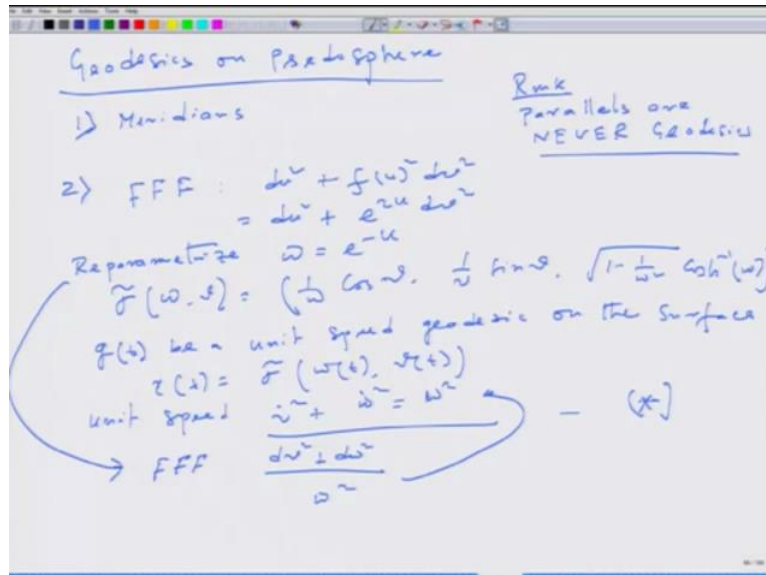 Geodesics on Psedosphere
1) Meridians
Rmk
Parallels are
NEVER Geodesics
2) FFF : du² + f(u)² dv²
= du² + e^{2u} dv²
Reparametrize ω = e^{-u}
σ̃(ω, v) = (1/ω Cos v, 1/ω Sin v, √(1 - 1/ω²) Cosh⁻¹(ω))
g(t) be a unit speed geodesic on the surface
r(t) = σ̃(ω(t), v(t))
unit speed v̇² + ω̇² = ω² — (*)
→ FFF (dv² + dω²)/ω²